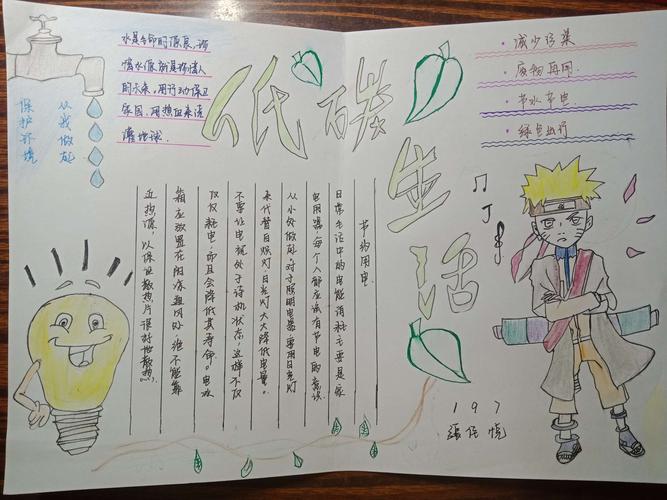 水是生命的源泉，珍
惜水源就是珍惜人
的未来，用行动保卫
家园，用热血来浇
灌地球。
保护环境
从我做起
低碳
生活
·减少污染
·废物再用
·节水节电
·绿色出行
节约用电
日常生活中的电能消耗主要是家
电用器，每个人都应该有节电的意识
从小处做起，对于照明电器，要用日光灯
来代替白炽灯，日光灯大大降低电量。
不要让电视处于待机状态，这样不仅
仅仅耗电，而且会降低其寿命。电冰
箱应放置在阴凉通风处，绝不能靠
近热源，以保证散热片很好地散热。
197